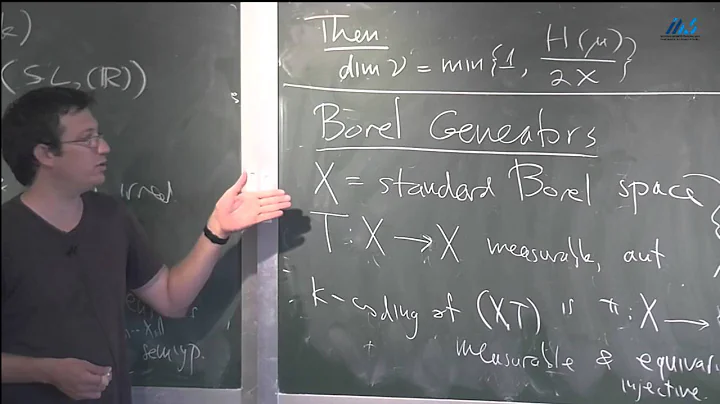 k)
(SL₂(ℝ))
semigp.
Then
dim ν = min {1, H(μ)/2χ}
Borel Geneators
X = standard Borel space
T: X → X measurable, aut
k-coding of (X,T) is π: X →
measurable & equivari
injective.